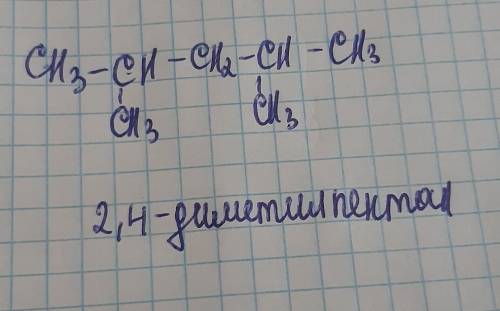 CH3-CH-CH2-CH-CH3
CH3 CH3
2,4-диметилпентан